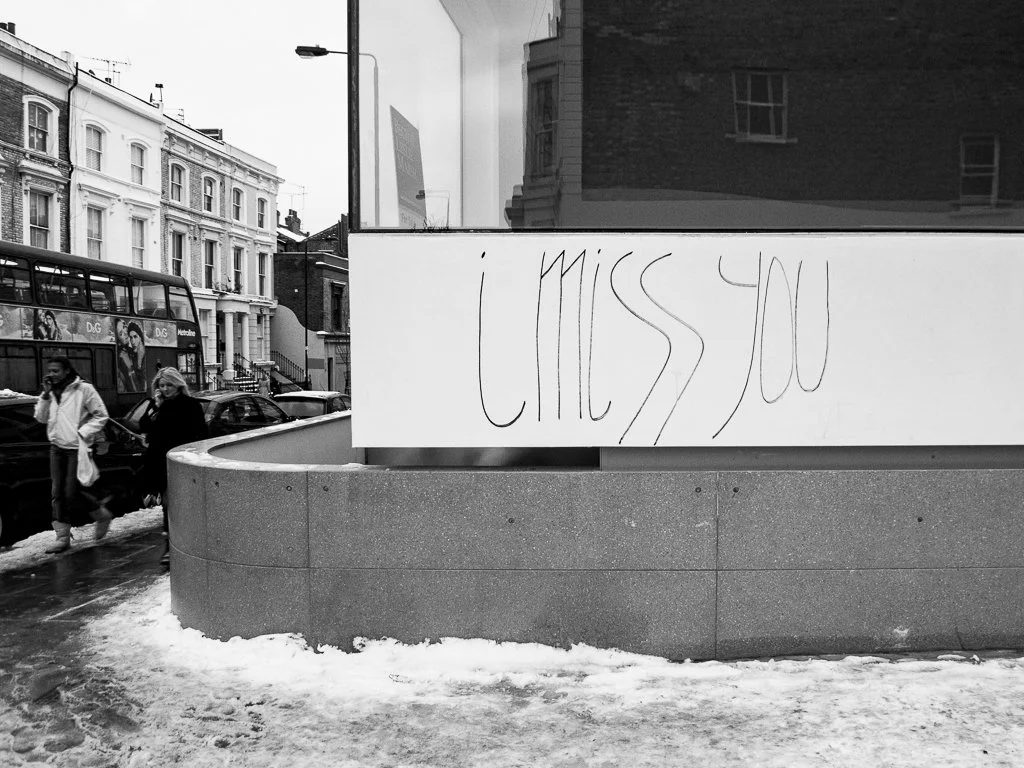 i miss you
D&G
D&G
Metroline